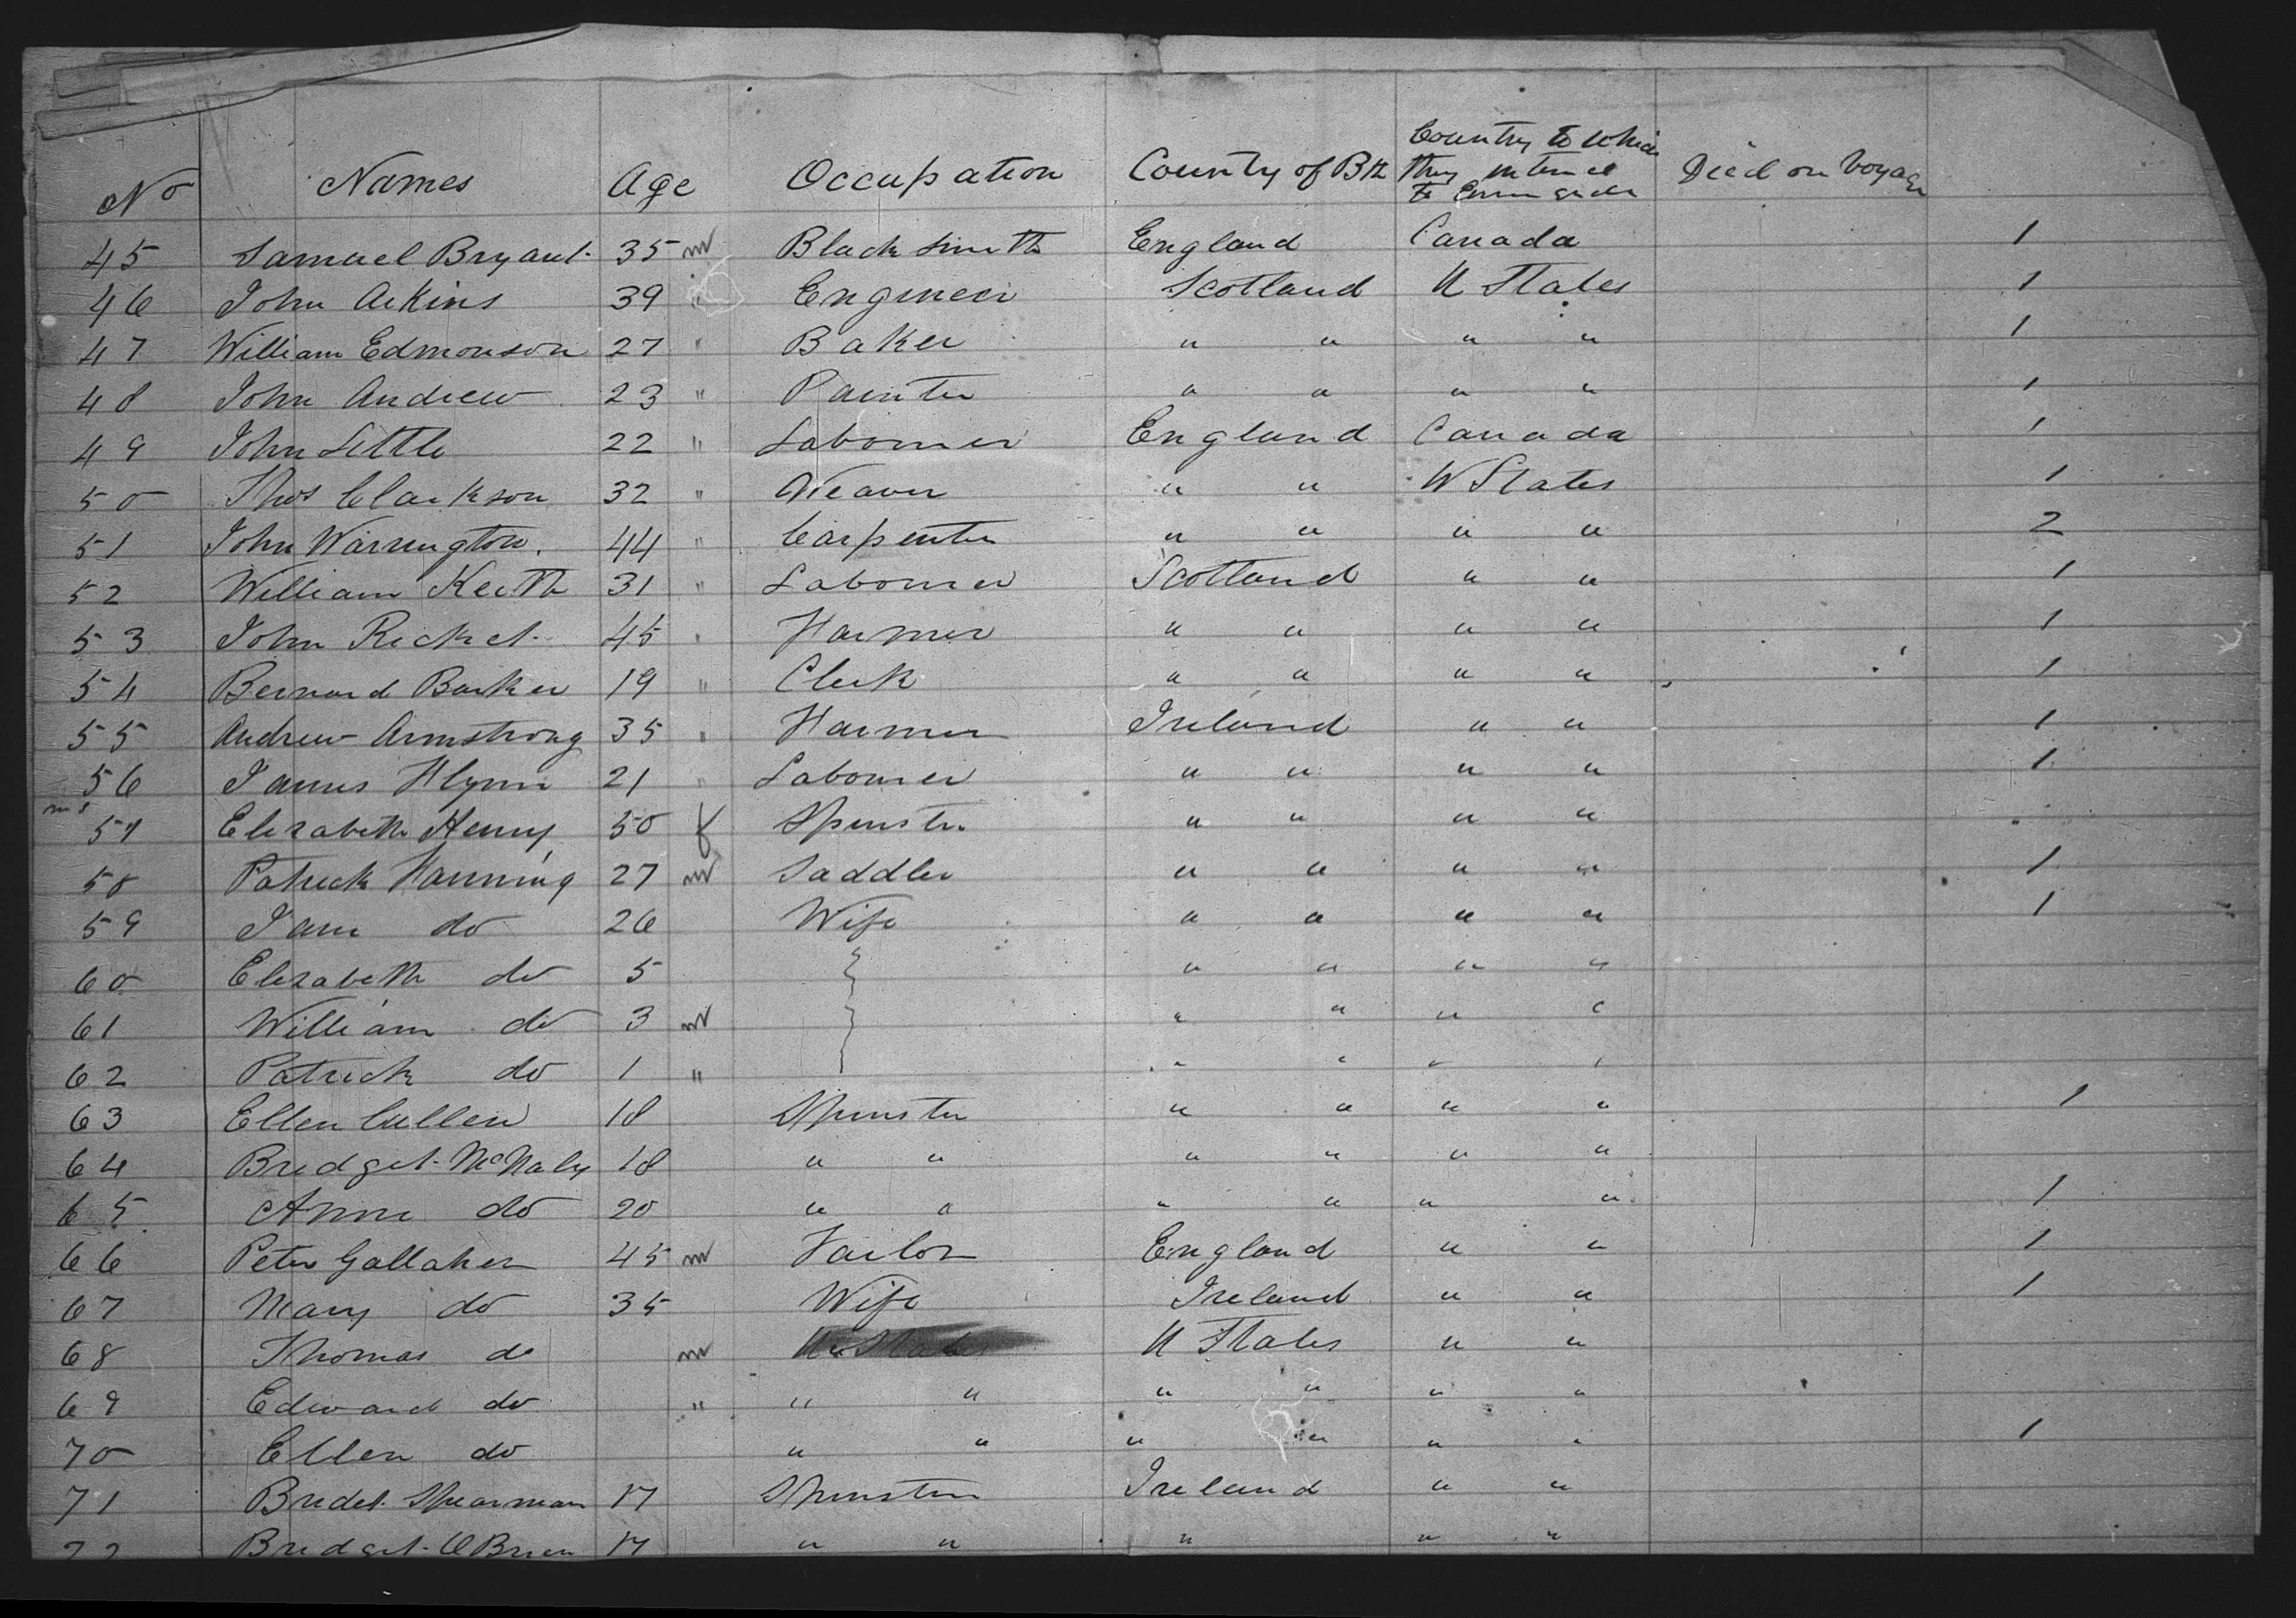 No Names Age Occupation County of Bth Country to which they intend to Emmigrate Died on Voyage
45 Samuel Bryant 35 m Blacksmith England Canada 1
46 John Aikins 39 " Engineer Scotland U States 1
47 William Edmonson 27 " Baker " " " " 1
48 John Andrew 23 " Painter " " " " 1
49 John Little 22 " Labourer England Canada 1
50 Thos Clarkson 32 " Weaver " " U States 1
51 John Warrington 44 " Carpenter " " " " 2
52 William Keith 31 " Labourer Scotland " " 1
53 John Ricket 45 " Farmer " " " " 1
54 Bernard Barker 19 " Clerk " " " " 1
55 Andrew Armstrong 35 " Farmer Ireland " " 1
56 James Flynn 21 " Labourer " " " " 1
57 Elizabeth Henry 50 f Spinster " " " "
58 Patrick Fanning 27 m Saddler " " " " 1
59 Jane do 26 Wife " " " " 1
60 Elizabeth do 5 " " " "
61 William do 3 m " " " "
62 Patrick do 1 " " " " "
63 Ellen Cullen 18 Spinster " " " " 1
64 Bridget McNaly 18 " " " " " "
65 Anne do 20 " " " " " " 1
66 Peter Gallaher 45 m Tailor England " " 1
67 Mary do 35 Wife Ireland " " 1
68 Thomas do m U States " "
69 Edward do " " " " " " "
70 Ellen do " " " " " " 1
71 Bridet Spearman 17 Spinster Ireland " "
72 Bridget OBrien 17 " " " " "